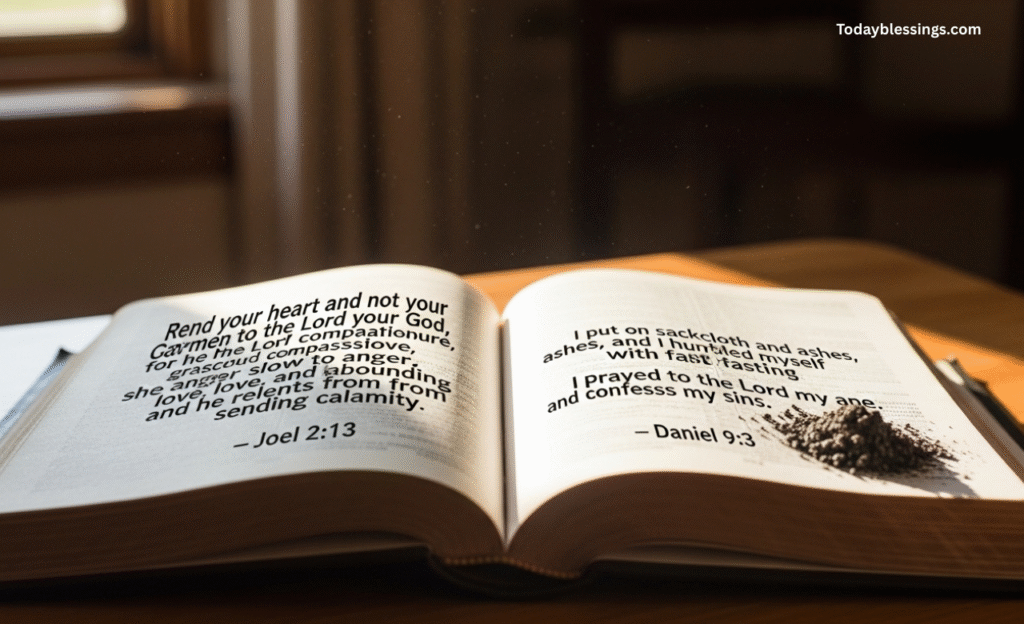 Todayblessings.com
Rend your heart and not your
to the Lord your God,
for he
compasssiove,
slow to anger,
she anger abounding
love, love, and
and he relents from from
sending calamity.
– Joel 2:13
I put on sackcloth and ashes,
ashes, and I humbled myself
with fast fasting
I prayed to the Lord my ane.
and confesss my sins.
– Daniel 9:3